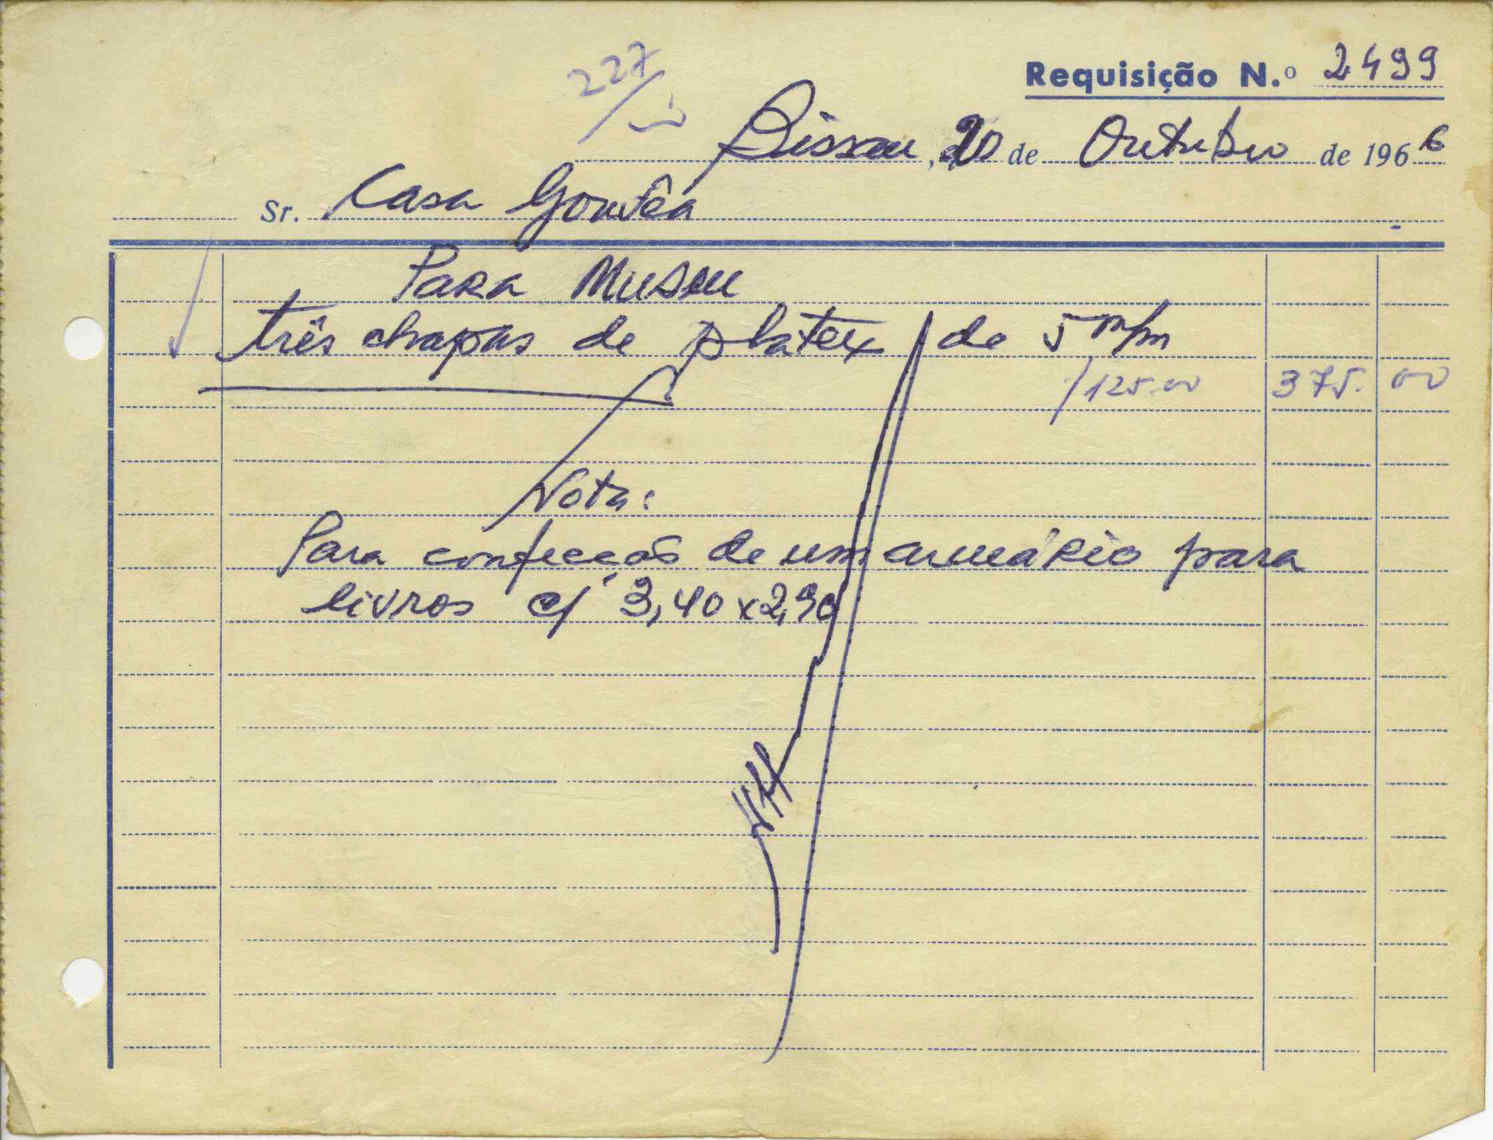 Requisição N.º 2499
227/
Bissau, 20 de Outubro de 1966
Sr. Casa Gouvêa
Para Museu
três chapas de platex de 5 m/m
/125.00 375. 00
Nota:
Para confecção de um armário para
livros c/ 3,40 x 2,90